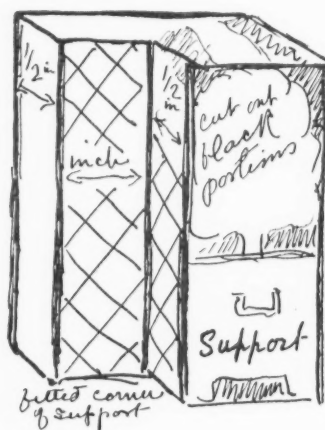 1/2 in
1/2 in
inch
cut out
black
portions
Support
fitted corner
of support